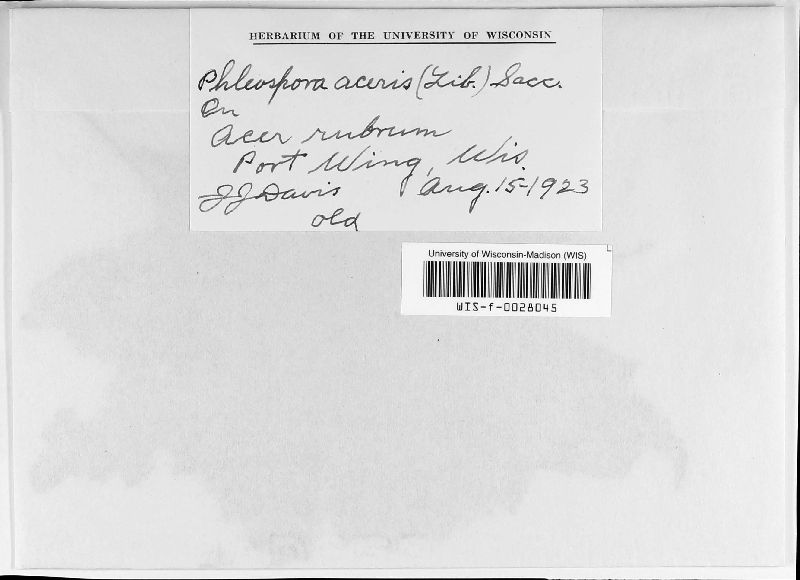 HERBARIUM OF THE UNIVERSITY OF WISCONSIN
Phleospora aceris (Lib.) Sacc.
On
Acer rubrum
Port Wing, Wis.
JJ Davis Aug. 15-1923
old
University of Wisconsin-Madison (WIS)
WIS-f-0028045